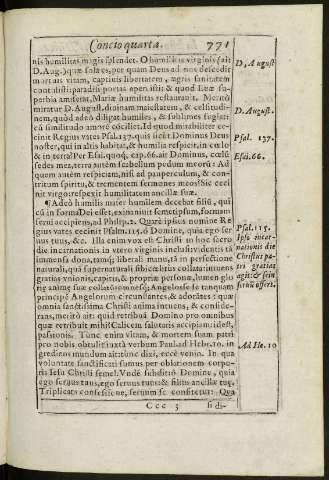 Concio quarta. 771
nis humilitas magis splendet. O humilitas virginis (ait
D. Aug.) quæ sola es, per quam Deus ad nos descedit
mortuis vitam, captiuis libertatem, ægris sanitatem
contulisti: paradisi portas aperuisti: & quod Euæ su-
perbia amiserat, Mariæ humilitas restaurauit. Meritò
miratur D. August. diuinam maiestatem, & celsitudi-
nem, quòd adeò diligat humiles, & sublimes fugiat:
cũ similitudo amoré cóciliet. Id quod mirabiliter ce-
cinit Regius vates Psal. 137. quis sicut Dominus Deus
noster, qui in altis habitat, & humilia respicit, in cœlo
& in terra? Per Esai. quoq; cap. 66. ait Dominus, cœlũ
sedes mea, terra autem scabellum pedum meorũ: Ad
quem autẽm respiciam, nisi ad pauperculum, & con-
tritum spiritu, & trementem sermones meos? Sic ceci
nit virgo, respexit humilitatem ancillæ suæ.
¶ Adeò humilis mater humilem decebat filiũ, qui
cũ in forma Dei esset, exinaniuit semetipsum, formam
serui accipiens, ad Philip. 2. Quare ipsius nomine Re
gius vates cecinit Psalm. 115. ô Domine, quia ego ser
uus tuus, &c. Illa enim vox est Christi in hoc sacro
die incarnationis in vtero virginis includi videntis tã
immensa dona, tamq; liberali manu, tã in perfectione
naturali, quà supernaturali sibi cœlitùs collata: intuens
gratiás vnionis, capitis, & propriæ personæ, lumen glo
riæ animæ suæ collatũ
omnia sanctissima Christi anima intuens, & conside-
rans, meritò ait: quid retribuã Domino pro omnibus
quæ retribuit mihi? Calicem salutaris accipiam: idest,
passionis. Tunc enim vitam, & mortem suam patri
pro nobis obtulit iuxtà verbum Pauli ad Hebr. 10. in
grediens mundum aittunc dixi, ecce venio. In qua
voluntate sanctificati sumus per oblationem corpo-
ris Iesu Christi semel. Vndè subditò Domine, quia
ego seruus tuus, ego seruus tuus & filius ancillæ tuę.
Triplicata confessione, seruum se constitetur: Qua
Ccc 3 si di-
D. August
D. August.
Psal. 137.
Esai. 66.
Psal. 115.
Ipso incar-
nationis die
Christus pa-
tri gratias
agit: & sein
seruũ offert.
Ad He. 10